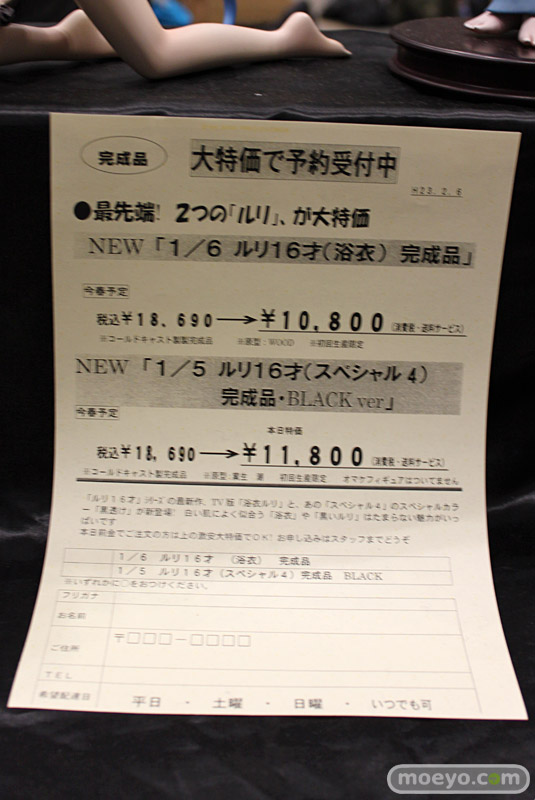 完成品
大特価で予約受付中
H23.2.6
●最先端! 2つの「ルリ」、が大特価
NEW「1/6 ルリ16才(浴衣) 完成品」
今春予定
税込¥18,690→¥10,800(消費税・送料サービス)
※コールドキャスト製完成品 ※原型:WOOD ※初回生産限定
NEW「1/5 ルリ16才(スペシャル4)
完成品・BLACK ver」
今春予定
本日特価
税込¥18,690→¥11,800(消費税・送料サービス)
※コールドキャスト製完成品 ※原型: 初回生産限定 オマケフィギュアはついてません
「ルリ16才」シリーズの最新作、TV版「浴衣ルリ」と、あの「スペシャル4」のスペシャルカラ
ー「黒透け」が新登場! 白い肌によく似合う「浴衣」や「黒いルリ」はたまらない魅力がいっ
ぱいです
本日前金でご注文の方は上の激安大特価でOK!お申し込みはスタッフまでどうぞ
1/6 ルリ16才 (浴衣) 完成品
1/5 ルリ16才(スペシャル4)完成品 BLACK
※いずれかに○をおつけください。
フリガナ
お名前
ご住所 〒□□□-□□□□
TEL
希望配達日 平日 ・ 土曜 ・ 日曜 ・ いつでも可
moeyo.com